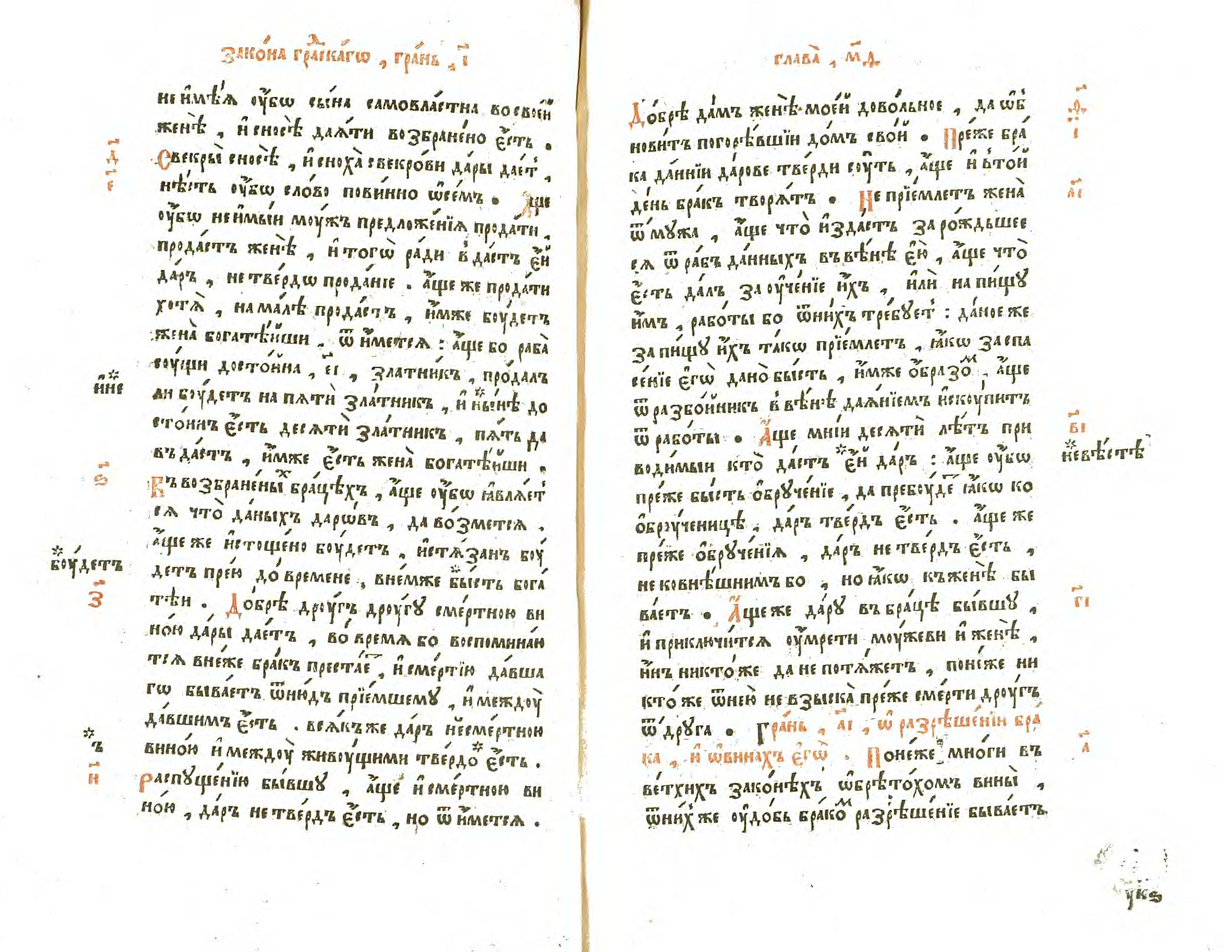 Зако́на гра́дскагѡ , гра́нь , і҃
не и҆мѣ́ѧ оу҆́бѡ сы́на самовла́стна во свое́й
женѣ̀ , и҆ сносѣ̀ даѧ́ти возбране́но є҆́сть .
Свекры̀ сносѣ̀ , и҆ сноха̀ свекро́ви да́ры дае́тъ ,
нѣ́сть оу҆́бѡ сло́во пови́нно ѡ҆ се́мъ . А҆́ще
оу҆́бѡ не и҆мы́и моу́жъ предложе́нїѧ прода́ти ,
прода́стъ женѣ̀ , и҆ тогѡ̀ ра́ди в̾да́стъ є҆́й
да́ръ , не тве́рдѡ прода́нїе . а҆́ще же прода́ти
хотѧ̀ , на ма́лѣ прода́стъ , и҆́мже боу́детъ
жена̀ богатѣ́йши , ѿи́метсѧ : а҆́ще бо раба̀
соу́щи досто́йна , є҃і , зла́тникъ , про́далъ
ли боу́детъ на пѧтѝ зла́тникъ , и҆ ны́нѣ до
сто́инъ є҆́сть десѧтѝ зла́тникъ , пѧ́ть да
въда́стъ , и҆́мже є҆́сть жена̀ богатѣ́йши .
Въ возбране́ныхъ бра́цѣхъ , а҆́ще оу҆́бѡ ꙗ҆влѧ́етъ
сѧ что̀ да́ныхъ даро́въ , да во́зметсѧ .
а҆́ще же и҆стощено̀ боу́детъ , и҆стѧ́занъ боу́
детъ пре́ю до вре́мене , в не́мже бы́сть бога
тѣ́и . До́брѣ дроу́гъ дроу́гꙋ сме́ртною ви
но́ю да́ры дае́тъ , во вре́мѧ бо воспомина́ю
тсѧ внегже бра́къ преста́етъ , и҆ сме́ртїю да́вша
гѡ быва́етъ ѿню́дъ прїе́мшемꙋ , и҆ междоу̀
да́вшимъ є҆́сть . всѧ́къ же да́ръ не сме́ртною
вино́ю и҆ междоу̀ живоу́щими твердо̀ є҆́сть .
Распꙋще́нїю бы́вшꙋ , а҆́ще и҆ сме́ртною ви
но́ю , да́ръ не тве́рдъ є҆́сть , но ѿи́метсѧ .
д҃
и҆́не
ѕ҃
боу́детъ
з҃
ъ
и҃
глава̀ , м҃д
До́брѣ да́мъ женѣ̀ мое́й дово́льное , да ѡ҆б
нови́тъ погорѣ́вшїи до́мъ сво́й . Пре́же бра́
ка да́ннїи да́рове тве́рди соу́ть , а҆́ще и҆ в̾ то́й
де́нь бра́къ творѧ́тъ . Не прїе́млетъ жена̀
ѿ мꙋ́жа , а҆́ще что̀ и҆зда́стъ за ро́ждьшее
сѧ ѿ ра́бъ да́нныхъ въ вѣ́нѣ є҆́ю , а҆́ще что̀
є҆́сть да́лъ за оу҆че́нїе и҆́хъ , и҆лѝ на пи́щꙋ
и҆́мъ , рабо́ты бо ѿ ни́хъ тре́бꙋетъ : да́ное же
за пи́щꙋ и҆́хъ та́кѡ прїе́млетъ , ꙗ҆́кѡ за спа
се́нїе є҆гѡ̀ дано̀ бы́сть , и҆́мже ѡ҆́бразомъ , а҆́ще
ѿ разбо́йникъ в̾ вѣ́нѣ даѧ́нїемъ и҆скоу́питъ
ѿ рабо́ты . А҆́ще мні́и десѧтѝ лѣ́тъ при
води́мыи кто̀ да́стъ є҆́й да́ръ : а҆́ще оу҆́бѡ
пре́же бы́сть ѡ҆брꙋче́нїе , да пребоу́детъ ꙗ҆́кѡ ко
ѡ҆броу́ченицѣ , да́ръ тве́рдъ є҆́сть . а҆́ще же
пре́же ѡ҆брꙋче́нїѧ , да́ръ не тве́рдъ є҆́сть ,
не ко внѣ́шнимъ бо , но ꙗ҆́кѡ къ женѣ̀ бы
ва́етъ . А҆́ще же да́рꙋ въ бра́цѣ бы́вшꙋ ,
и҆ приключи́тсѧ оу҆мре́ти моу́жеви и҆ женѣ̀ ,
и҆́нъ никто́же да не потѧ́жетъ , поне́же ни
кто́же ѿ не́ю не взыска̀ пре́же сме́рти дроу́гъ
ѿ дрꙋга . Гра́нь , а҃і , ѡ҆ разрѣше́нїи бра́
ка , и҆ ѡ҆ вина́хъ є҆гѡ̀ . Поне́же мно́ги въ
ве́тхихъ зако́нѣхъ ѡ҆брѣто́хомъ вины̀ ,
ѿ ни́хже оу҆до́бь бра́комъ разрѣше́нїе быва́етъ
а҃і
в҃і
невѣ́стѣ
г҃і
а҃
ꙋ҃кѕ